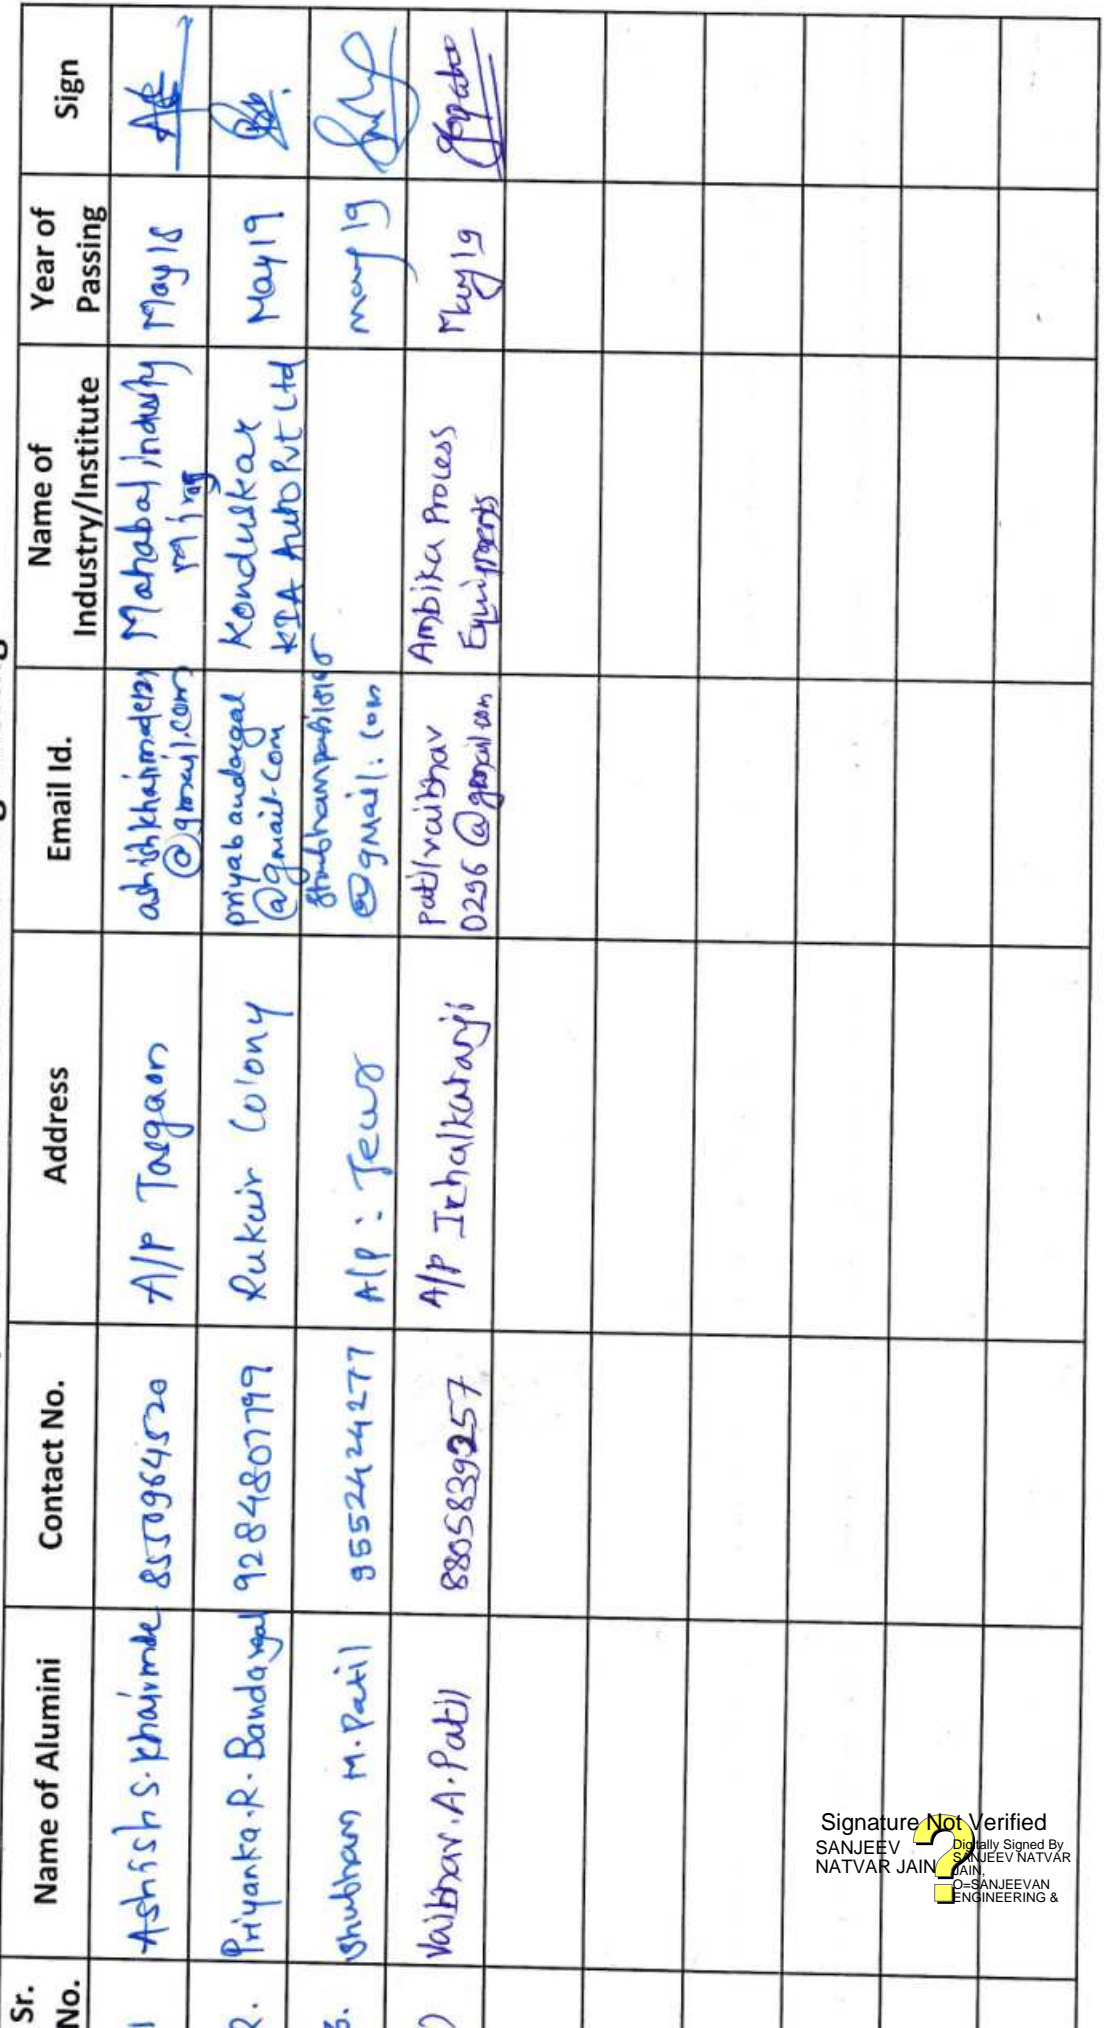 Sr. No. Name of Alumini Contact No. Address Email Id. Name of Industry/Institute Year of Passing Sign
1 Ashish S. Khairmode 8550964520 A/P Tasgaon @gmail.com Mahabal Industry Miraj May 18
2. Priyanka.R.Bandargal 9284807799 Rukuir Colony priyabandargal @gmail.com Konduskar KIA Auto Pvt Ltd May19
3. Shubham M.Patil 9552424277 A/P: @gmail.com may 19
Vaibhav.A.Patil 8805839257 A/P Ichalkaranji patilvaibhav 0296@gmail.com Ambika Process Equipments May19
Signature Not Verified
SANJEEV
NATVAR JAIN
Digitally Signed By
SANJEEV NATVAR
JAIN,
O=SANJEEVAN
ENGINEERING &